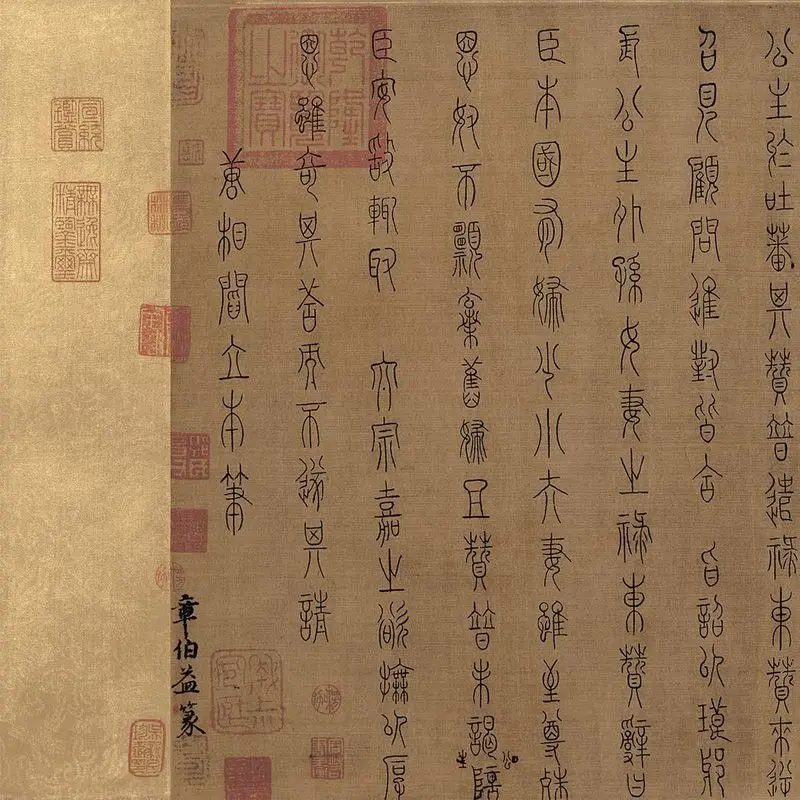 公主於吐蕃其贊普遣祿東贊來逆
召見顧問進對皆合 旨詔以瑯邪
長公主外孫女妻之祿東贊辭曰
臣本國有婦少小夫妻雖至尊殊
恩奴不願棄舊婦且贊普未謁公主陪
臣安敢輒取 太宗嘉之欲撫以厚
恩雖奇其荅而不遂其請
唐相閻立本筆
章伯益篆
宣統鑑賞
無逸齋精鑒璽